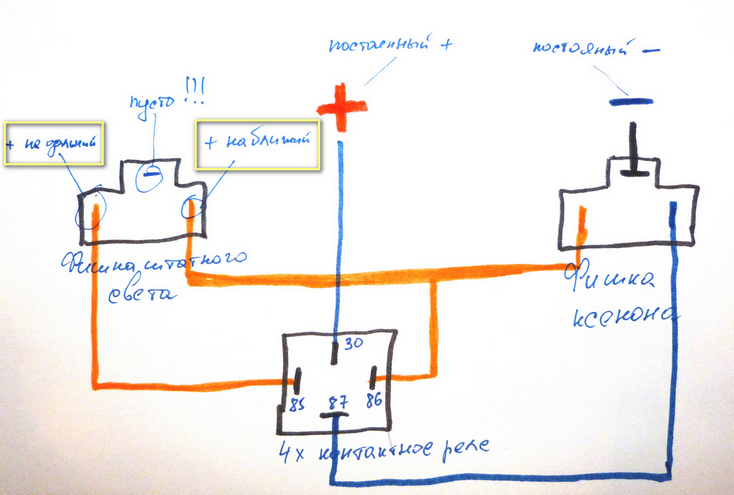 постоянный +
постояный −
пусто !!!
+ на дальний
+ на ближний
Фишка штатного
света
Фишка
ксенона
30
85
87
86
4х контактное реле